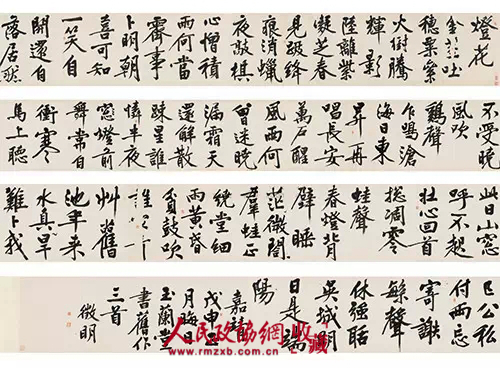 燈花
金蕊吐
穗粲絲
火樹騰
輝影
陸離紫
凝芝春
見跋絳
痕消蠟
夜敲棋
心憎積
雨何當
霽事
卜明朝
喜可知
一笑自
開還自
落居然
不受曉
風吹
鷄聲
乍鳴滄
海日東
昇再
唱長安
萬戶醒
風雨何
曾迷曉
漏霜天
還解散
踈星誰
憐半夜
窓燈前
舞常自
衝寒
馬上聽
此日山窓
呼不起
壯心回首
揔凋零
蛙聲
春燈背
壁睡
茫微閣
群蛙正
繞堂細
雨黃昏
貧鼓吹
艸舊
池年來
水真旱
難卜我
已公私
付兩忘
寄謝
繁聲
休強聒
吳城明
日是端
陽
嘉靖
戊申
月晦日
玉蘭堂
書舊作
三首
徵明
人民政協網收藏
www.rmzxb.com.cn